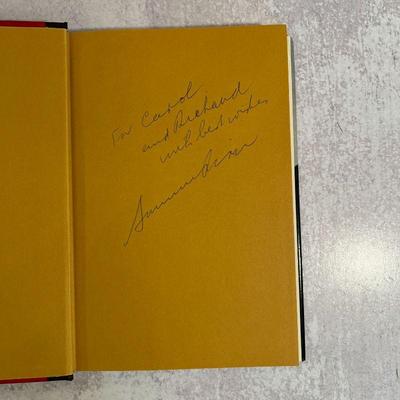 For Carol
and Richard
with best wishes